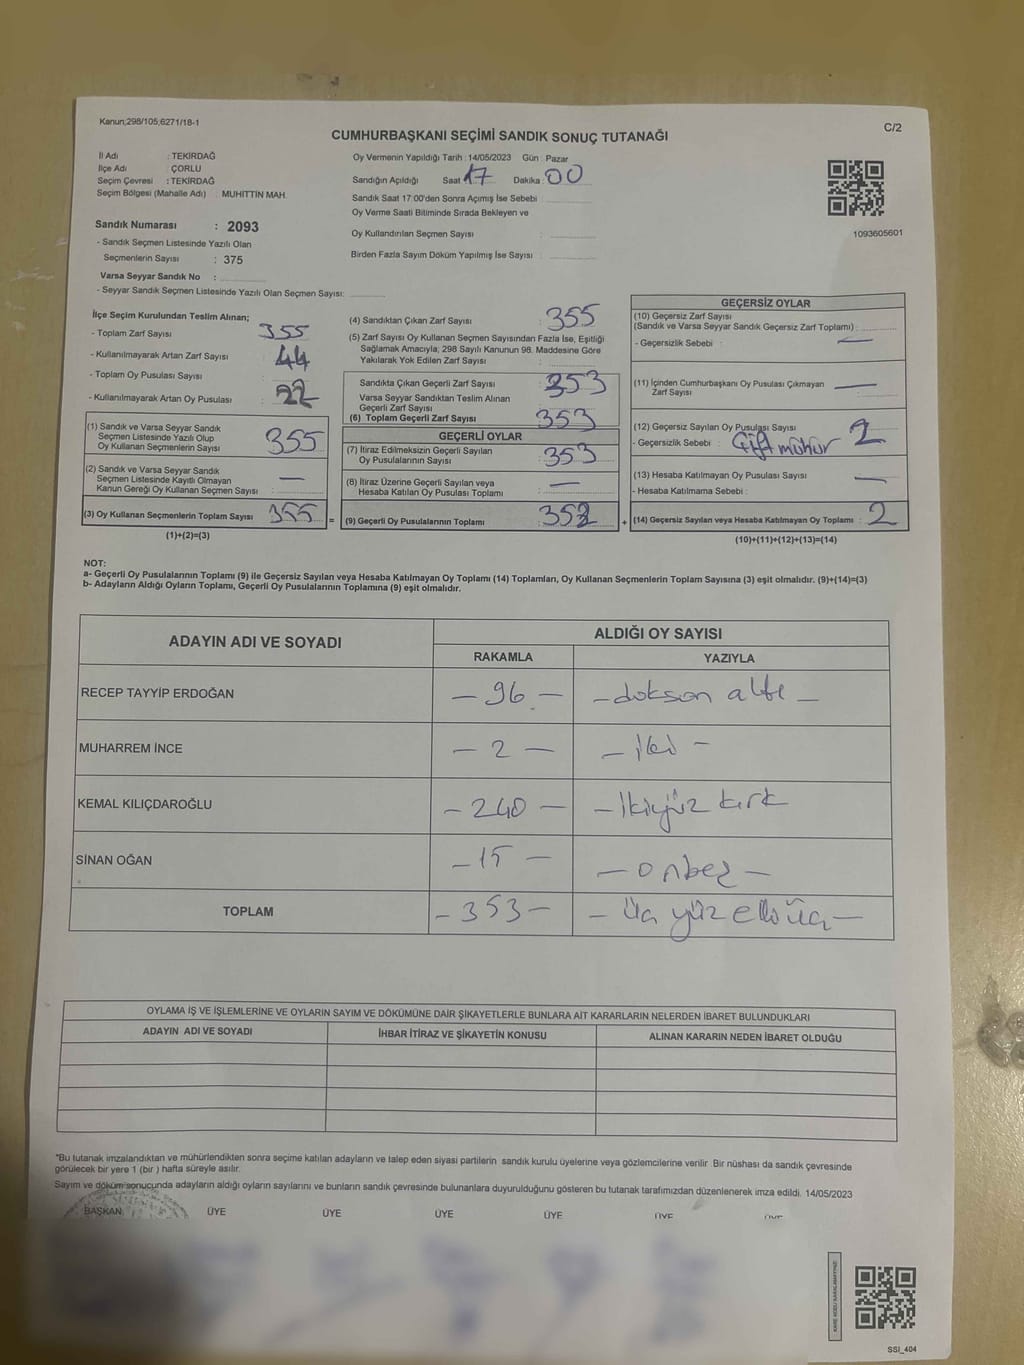 Kanun;298/105,6271/18-1
C/2
CUMHURBAŞKANI SEÇİMİ SANDIK SONUÇ TUTANAĞI
İl Adı : TEKİRDAĞ
İlçe Adı : ÇORLU
Seçim Çevresi : TEKİRDAĞ
Seçim Bölgesi (Mahalle Adı) : MUHİTTİN MAH.
Sandık Numarası : 2093
- Sandık Seçmen Listesinde Yazılı Olan
Seçmenlerin Sayısı : 375
Varsa Seyyar Sandık No :
- Seyyar Sandık Seçmen Listesinde Yazılı Olan Seçmen Sayısı:
Oy Vermenin Yapıldığı Tarih : 14/05/2023 Gün : Pazar
Sandığın Açıldığı Saat 17 Dakika : 00
Sandık Saat 17:00'den Sonra Açımış İse Sebebi
Oy Verme Saati Bitiminde Sırada Bekleyen ve
Oy Kullandırılan Seçmen Sayısı :
Birden Fazla Sayım Döküm Yapılmış İse Sayısı :
1093605601
İlçe Seçim Kurulundan Teslim Alınan;
- Toplam Zarf Sayısı 355
- Kullanılmayarak Artan Zarf Sayısı 44
- Toplam Oy Pusulası Sayısı :
- Kullanılmayarak Artan Oy Pusulası : 22
(1) Sandık ve Varsa Seyyar Sandık
Seçmen Listesinde Yazılı Olup
Oy Kullanan Seçmenlerin Sayısı 355
(2) Sandık ve Varsa Seyyar Sandık
Seçmen Listesinde Kayıtlı Olmayan
Kanun Gereği Oy Kullanan Seçmen Sayısı : —
(3) Oy Kullanan Seçmenlerin Toplam Sayısı 355
(1)+(2)=(3)
(4) Sandıktan Çıkan Zarf Sayısı : 355
(5) Zarf Sayısı Oy Kullanan Seçmen Sayısından Fazla İse, Eşitliği
Sağlamak Amacıyla, 298 Sayılı Kanunun 98. Maddesine Göre
Yakılarak Yok Edilen Zarf Sayısı
Sandıkta Çıkan Geçerli Zarf Sayısı : 353
Varsa Seyyar Sandıktan Teslim Alınan
Geçerli Zarf Sayısı
(6) Toplam Geçerli Zarf Sayısı 353
GEÇERLİ OYLAR
(7) İtiraz Edilmeksizin Geçerli Sayılan
Oy Pusulalarının Sayısı : 353
(8) İtiraz Üzerine Geçerli Sayılan veya
Hesaba Katılan Oy Pusulası Toplamı : —
= (9) Geçerli Oy Pusulalarının Toplamı 353
GEÇERSİZ OYLAR
(10) Geçersiz Zarf Sayısı
(Sandık ve Varsa Seyyar Sandık Geçersiz Zarf Toplamı) :
- Geçersizlik Sebebi : —
(11) İçinden Cumhurbaşkanı Oy Pusulası Çıkmayan —
Zarf Sayısı
(12) Geçersiz Sayılan Oy Pusulası Sayısı 2
- Geçersizlik Sebebi : Çift mühür
(13) Hesaba Katılmayan Oy Pusulası Sayısı —
- Hesaba Katılmama Sebebi :
+ (14) Geçersiz Sayılan veya Hesaba Katılmayan Oy Toplamı : 2
(10)+(11)+(12)+(13)=(14)
NOT:
a- Geçerli Oy Pusulalarının Toplamı (9) ile Geçersiz Sayılan veya Hesaba Katılmayan Oy Toplamı (14) Toplamları, Oy Kullanan Seçmenlerin Toplam Sayısına (3) eşit olmalıdır. (9)+(14)=(3)
b- Adayların Aldığı Oyların Toplamı, Geçerli Oy Pusulalarının Toplamına (9) eşit olmalıdır.
ADAYIN ADI VE SOYADI ALDIĞI OY SAYISI
RAKAMLA YAZIYLA
RECEP TAYYİP ERDOĞAN — 96 — — doksan altı —
MUHARREM İNCE — 2 — — iki —
KEMAL KILIÇDAROĞLU — 240 — — ikiyüz kırk
SİNAN OĞAN — 15 — — onbeş —
TOPLAM — 353 — — Üç yüz elli üç —
OYLAMA İŞ VE İŞLEMLERİNE VE OYLARIN SAYIM VE DÖKÜMÜNE DAİR ŞİKAYETLERLE BUNLARA AİT KARARLARIN NELERDEN İBARET BULUNDUKLARI
ADAYIN ADI VE SOYADI İHBAR İTİRAZ VE ŞİKAYETİN KONUSU ALINAN KARARIN NEDEN İBARET OLDUĞU
*Bu tutanak imzalandıktan ve mühürlendikten sonra seçime katılan adayların ve talep eden siyasi partilerin sandık kurulu üyelerine veya gözlemcilerine verilir. Bir nüshası da sandık çevresinde
görülecek bir yere 1 (bir) hafta süreyle asılır.
Sayım ve döküm sonucunda adayların aldığı oyların sayılarını ve bunların sandık çevresinde bulunanlara duyurulduğunu gösteren bu tutanak tarafımızdan düzenlenerek imza edildi. 14/05/2023
BAŞKAN ÜYE ÜYE ÜYE ÜYE ÜYE ÜYE
SSI_404